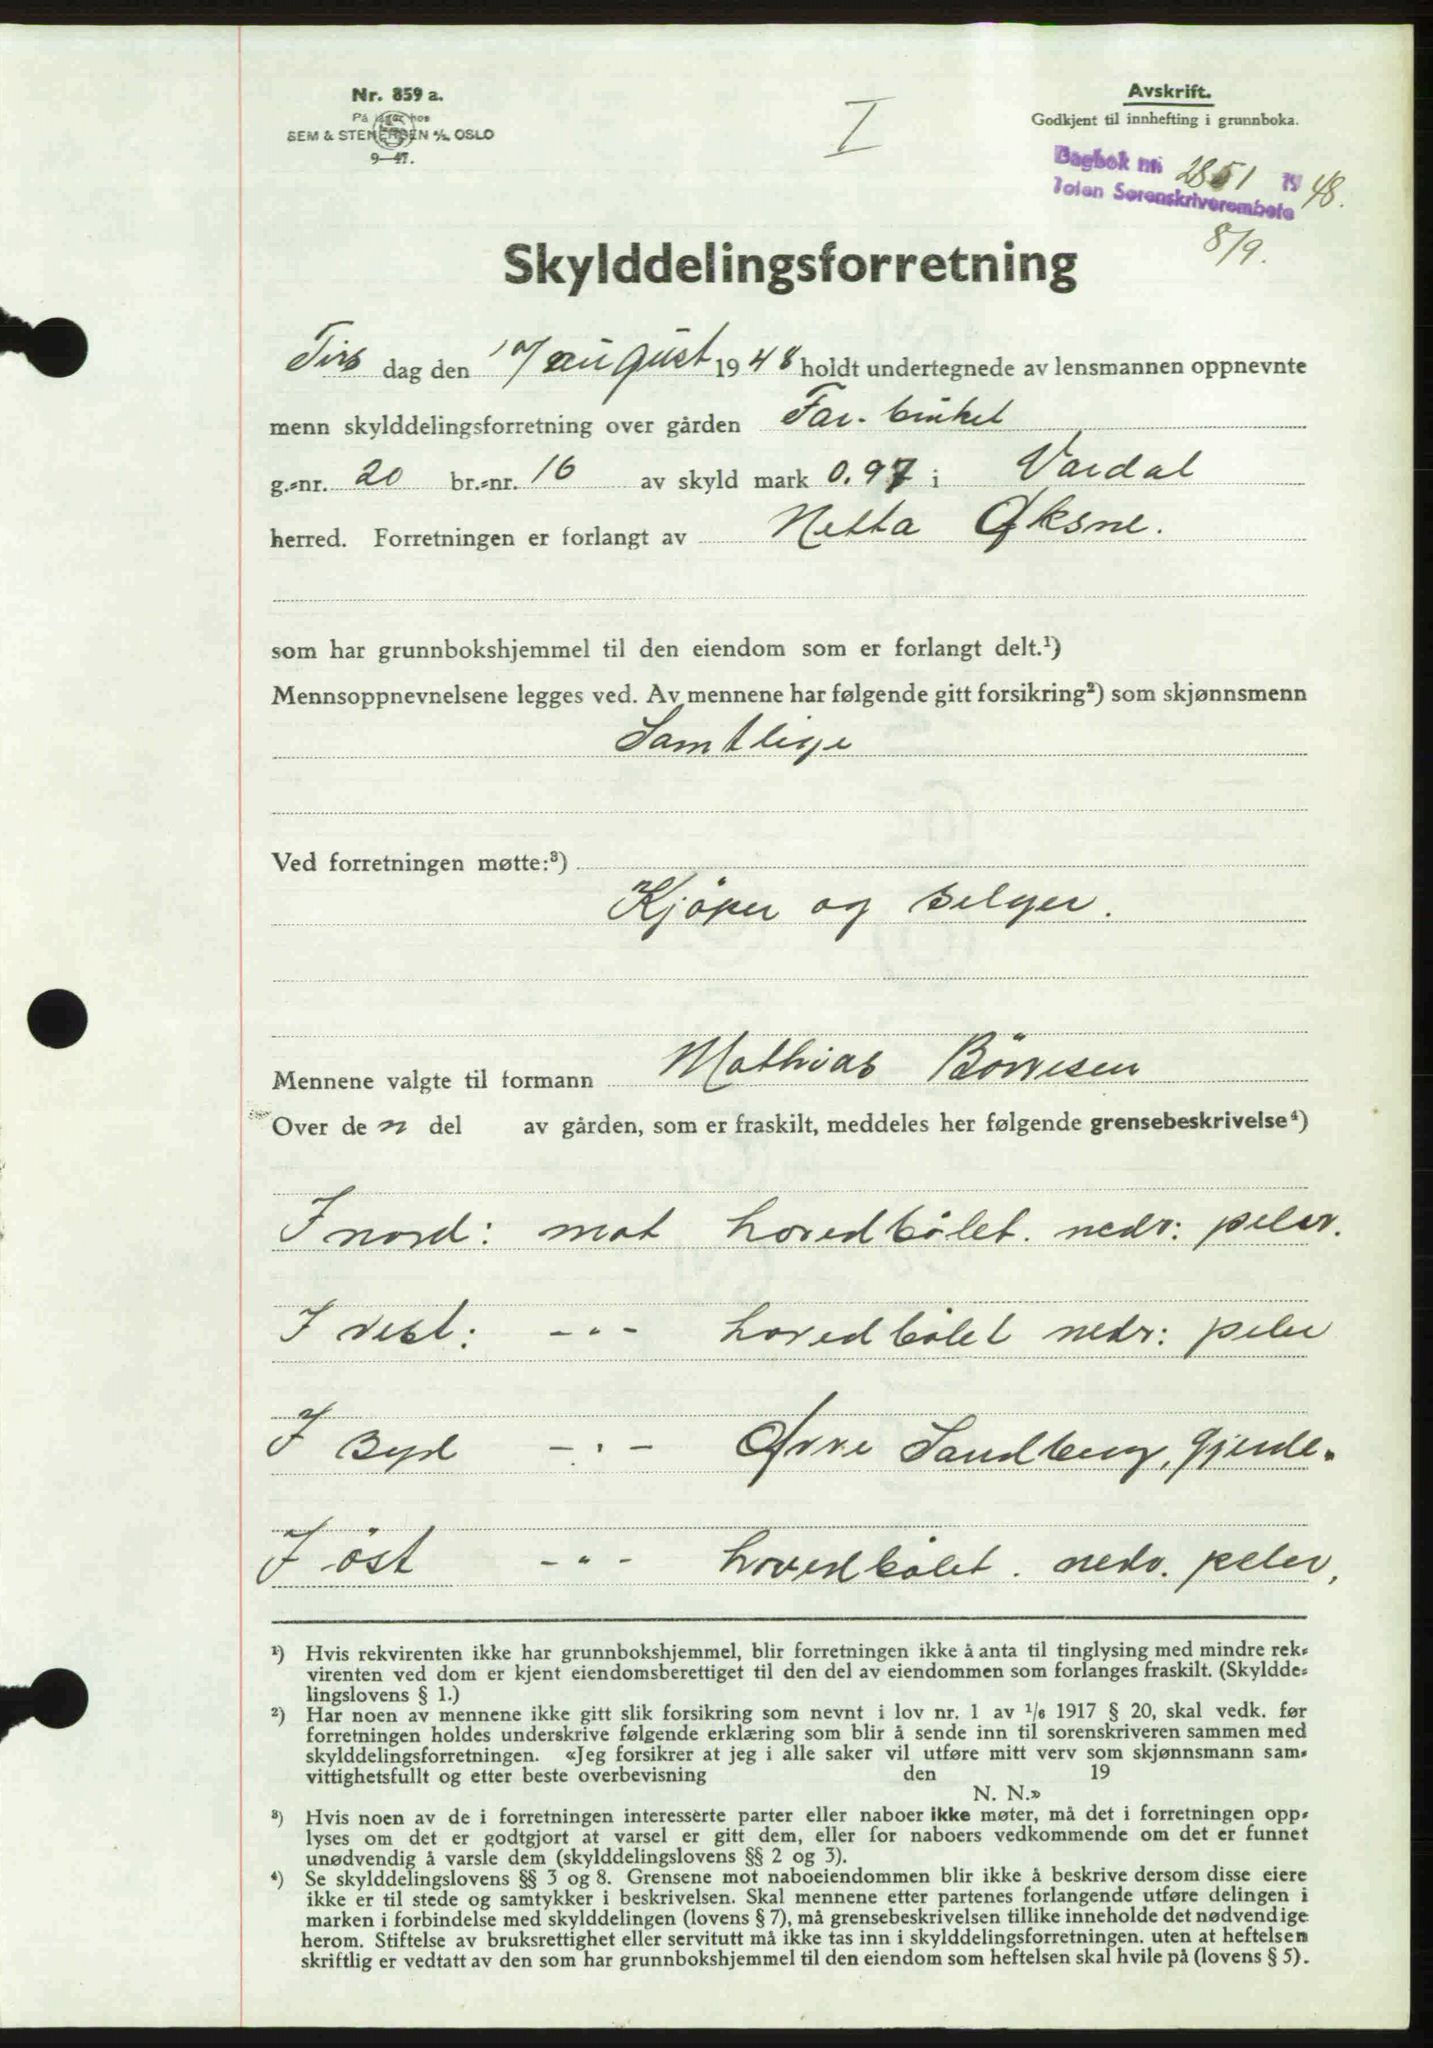 Nr. 859 a.
På lager hos
SEM & STENERSEN A/S OSLO
9—47.
I
Avskrift.
Godkjent til innhefting i grunnboka.
Dagbok nr. 2851 19 48.
Toten Sorenskriverembete
8/9.
Skylddelingsforretning
Tirs dag den 17/august 1948 holdt undertegnede av lensmannen oppnevnte
menn skylddelingsforretning over gården
g.-nr. 20 br.-nr. 16 av skyld mark 0.97 i Vardal
herred. Forretningen er forlangt av Netta Øksne.
som har grunnbokshjemmel til den eiendom som er forlangt delt.¹)
Mennsoppnevnelsene legges ved. Av mennene har følgende gitt forsikring²) som skjønnsmenn
Samtlige
Ved forretningen møtte:³)
Kjöper og selger.
Mennene valgte til formann Mathias
Over de n del av gården, som er fraskilt, meddeles her følgende grensebeskrivelse⁴)
I nord: mot hovedbölet. nedr: peler.
I vest: -"- hovedbölet nedr: peler
I syd -"- Øvre Sandberg, gjerde.
I öst -"- hovedbölet. nedr. peler,
¹) Hvis rekvirenten ikke har grunnbokshjemmel, blir forretningen ikke å anta til tinglysing med mindre rek-
virenten ved dom er kjent eiendomsberettiget til den del av eiendommen som forlanges fraskilt. (Skyldde-
lingslovens § 1.)
²) Har noen av mennene ikke gitt slik forsikring som nevnt i lov nr. 1 av 1/6 1917 § 20, skal vedk. før
forretningen holdes underskrive følgende erklæring som blir å sende inn til sorenskriveren sammen med
skylddelingsforretningen. «Jeg forsikrer at jeg i alle saker vil utføre mitt verv som skjønnsmann sam-
vittighetsfullt og etter beste overbevisning den 19
N. N.»
³) Hvis noen av de i forretningen interesserte parter eller naboer ikke møter, må det i forretningen opp-
lyses om det er godtgjort at varsel er gitt dem, eller for naboers vedkommende om det er funnet
unødvendig å varsle dem (skylddelingslovens §§ 2 og 3).
⁴) Se skylddelingslovens §§ 3 og 8. Grensene mot naboeiendommen blir ikke å beskrive dersom disse eiere
ikke er til stede og samtykker i beskrivelsen. Skal mennene etter partenes forlangende utføre delingen i
marken i forbindelse med skylddelingen (lovens § 7), må grensebeskrivelsen tillike inneholde det nødvendige
herom. Stiftelse av bruksrettighet eller servitutt må ikke tas inn i skylddelingsforretningen. uten at heftelsen
skriftlig er vedtatt av den som har grunnbokshjemmel til den eiendom som heftelsen skal hvile på (lovens § 5).